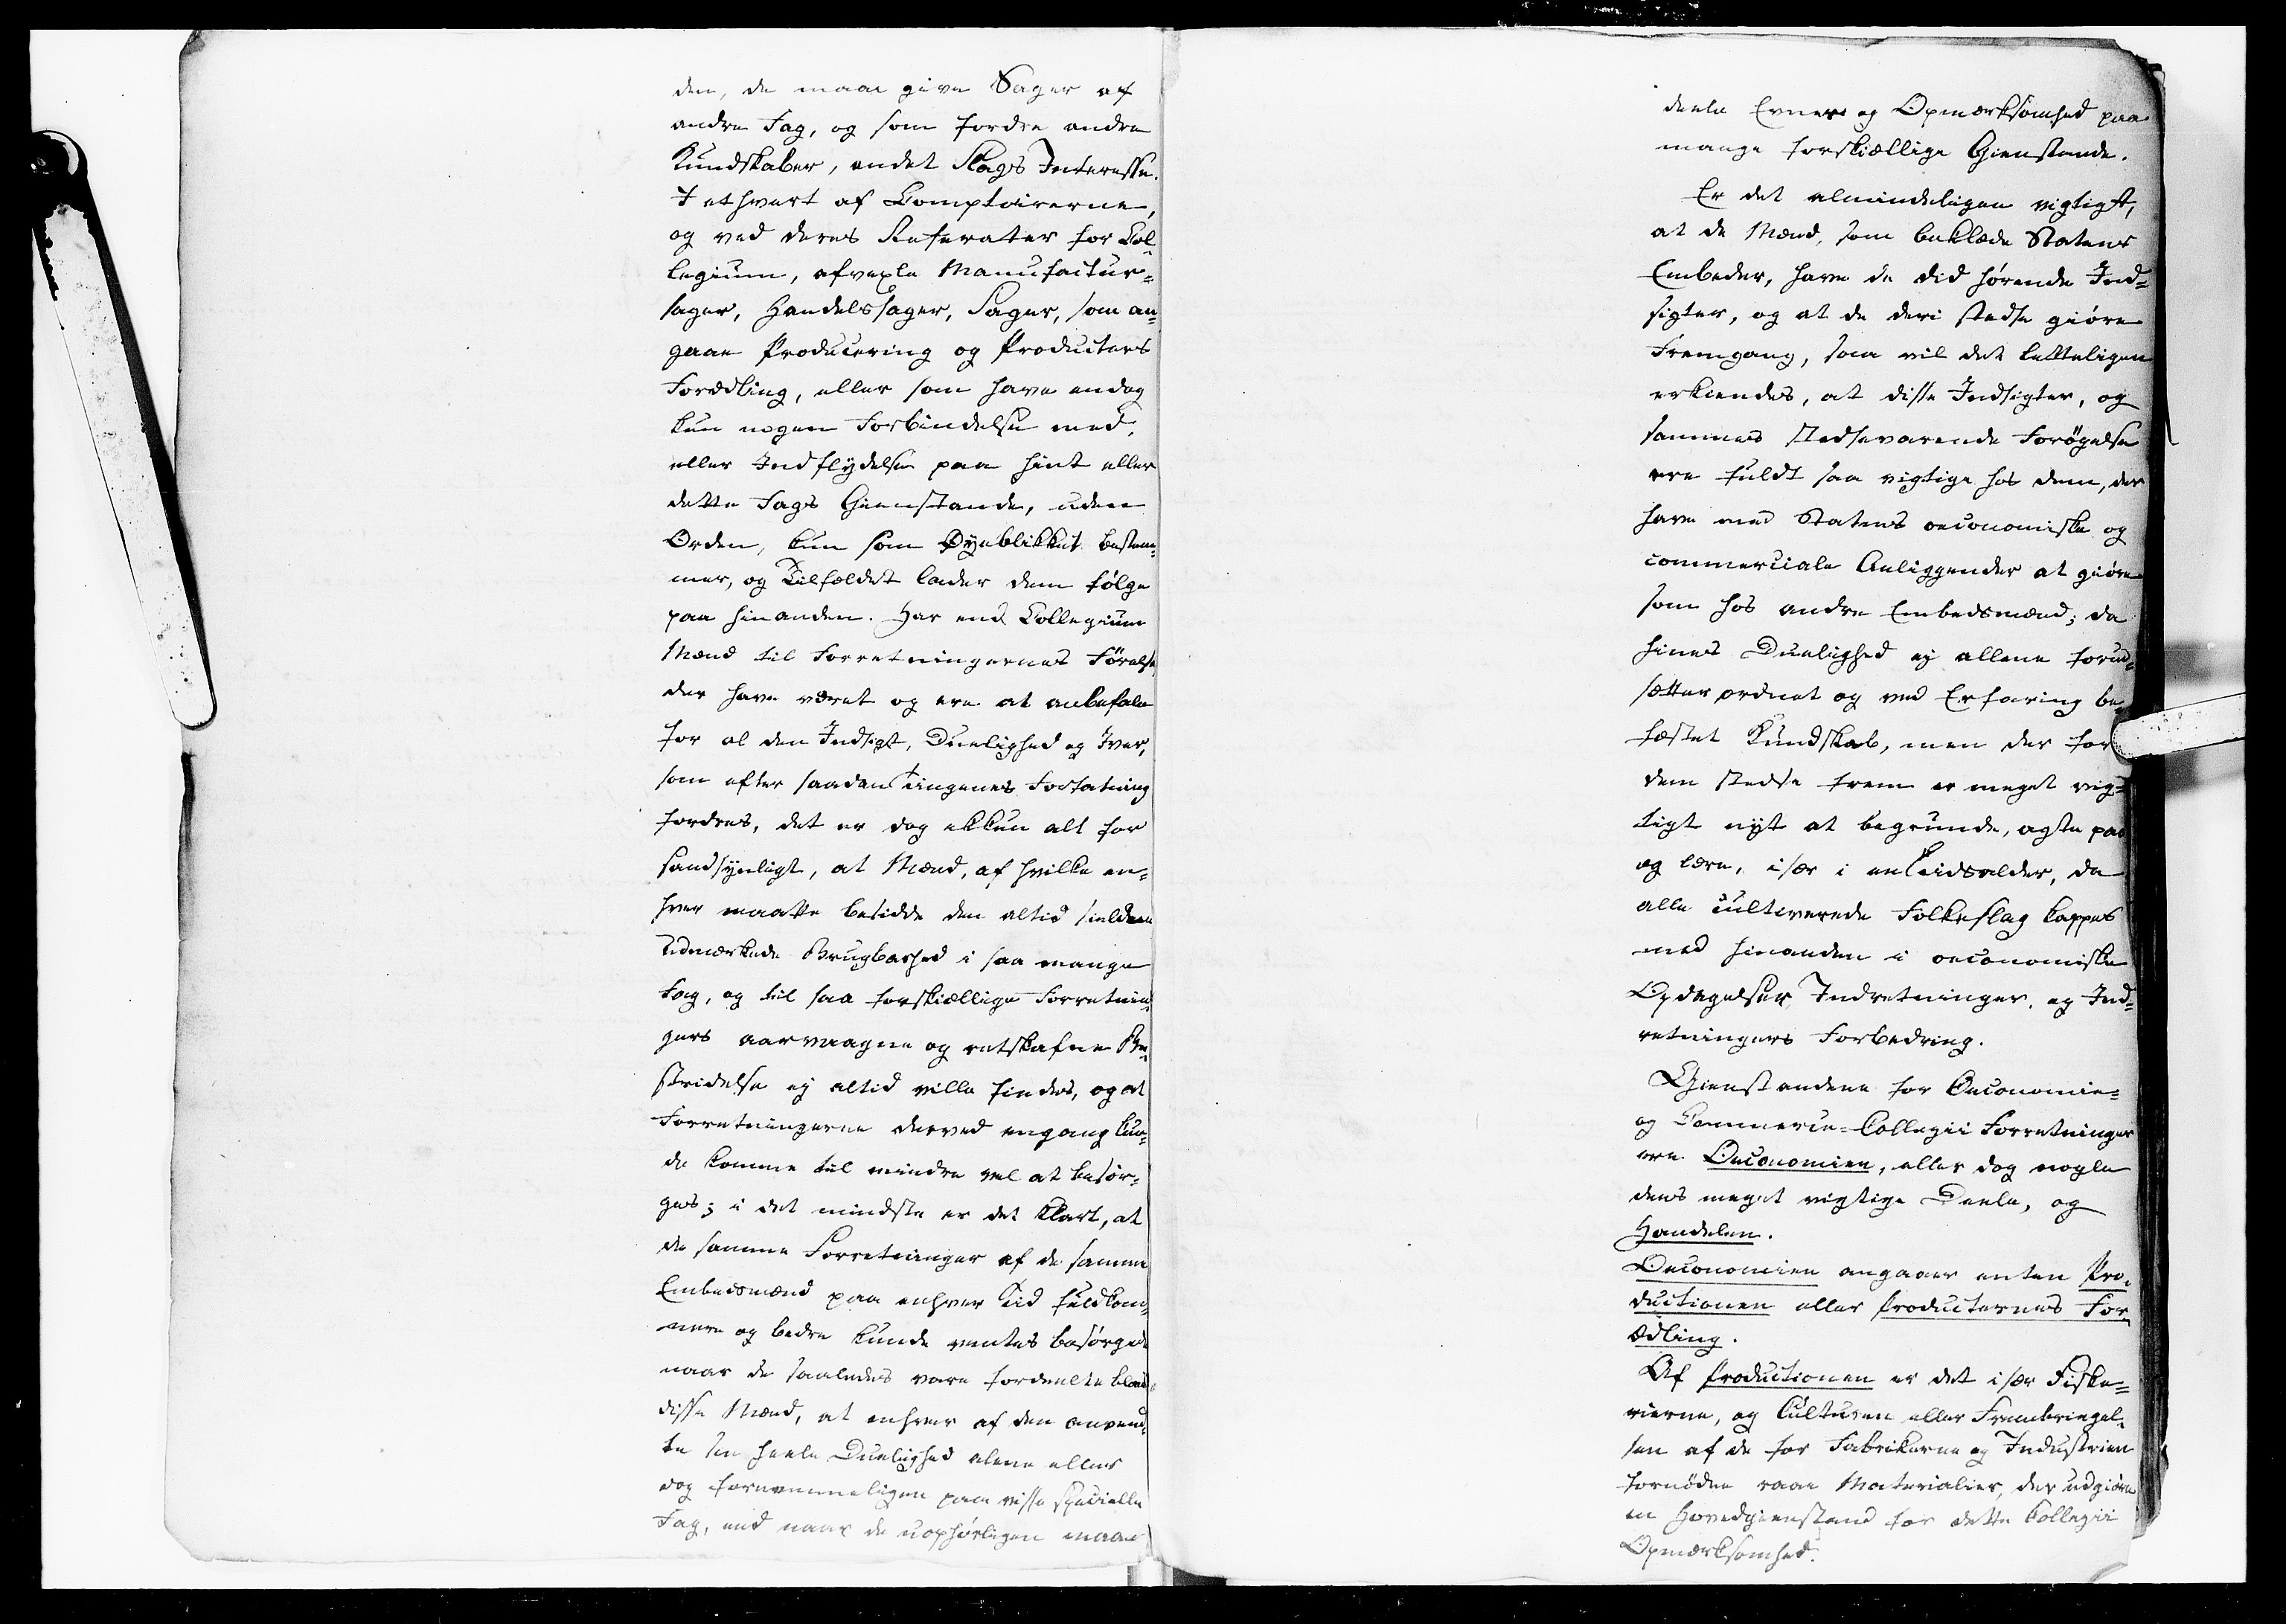 den, de maae give Sager af
andre Fag, og som fordre andre
Kundskaber, andet Slags Interesse.
I ethvert af Comptoirerne,
og ved deres Referater for Col-
legium, afvexle Manufactur-
sager, Handelssager, Sager, som an-
gaae Producering og Producters
Forædling, eller som have endog
kun nogen Forbindelse med,
eller Indflydelse paa hint eller
dette Fags Gienstande, uden
Orden, kun som Øyeblikket bestem-
mer, og Tilfældet lader dem følge
paa hinanden. Har end Collegium
Mænd til Forretningernes Førelse,
der have været og ere at anbefale
for al den Indsigt, Duelighed og Iver,
som efter saadan Tingenes Forfatning
fordres, det er dog ikkun alt for
sandsynligt, at Mænd, af hvilke en-
hver maatte besidde den altid sieldne
udmærkede Brugbarhed i saa mange
Fag, og til saa forskiællige Forretnin-
gers aarvaagne og retskafne Be-
stridelse ej altid ville findes, og at
Forretningerne derved engang kun-
de komme til mindre vel at besør-
ges; i det mindste er det klart, at
de samme Forretninger af de samme
Embedsmænd paa enhver Tid fuldkom-
mere og bedre kunde ventes besørgede
naar de saaledes vare fordeelte blandt
disse Mænd, at enhver af dem anvend-
te sin heele Duelighed alene eller
dog fornemmeligen paa visse specielle
Fag, end naar de uophørligen maae
deele Evner og Opmærksomhed paa
mange forskiællige Gienstande.
Er det almindeligen vigtigt,
at de Mænd, som beklæde Statens
Embeder, have de did hørende Ind-
sigter, og at de deri stedse giøre
Fremgang, saa vil det letteligen
erkiendes, at disse Indsigter, og
sammes stedsevarende Forøgelse
ere fuldt saa vigtige hos dem, der
have med Statens oeconomiske og
commerciale Anliggender at giøre
som hos andre Embedsmænd; da
hines Duelighed ej allene forud-
sætter ordnet og ved Erfaring be-
fæstet Kundskab, men der for
dem stedse frem er meget vig-
tigt nyt at begrunde, agte paa
og lære, især i en Tidsalder, da
alle cultiverede Folkeslag kappes
med hinanden i oeconomiske
Opdagelser, Indretninger, og Ind-
retningers Forbedring.
Gienstandene for Oeconomie-
og Commerce-Collegii Forretninger
ere Oeconomien, eller dog nogle
dens meget vigtige Deele, og
Handelen.
Oeconomien angaaer enten Pro-
ductionen eller Producternes For-
ædling.
Af Productionen er det især Fiske-
rierne, og Culturen eller Frembringel-
sen af de for Fabrikerne og Industrien
fornødne raae Materialier, der udgiøre
en Hovedgienstand for dette Collegii
Opmærksomhed.